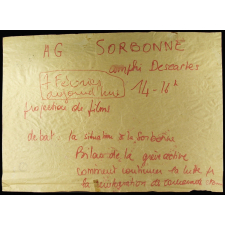 AG SORBONNE
amphi Descartes
14-16h
aujourd'hui
projection de films
debat : la situation de la Sorbonne
Bilan de la grève active
comment continuer la lutte
la